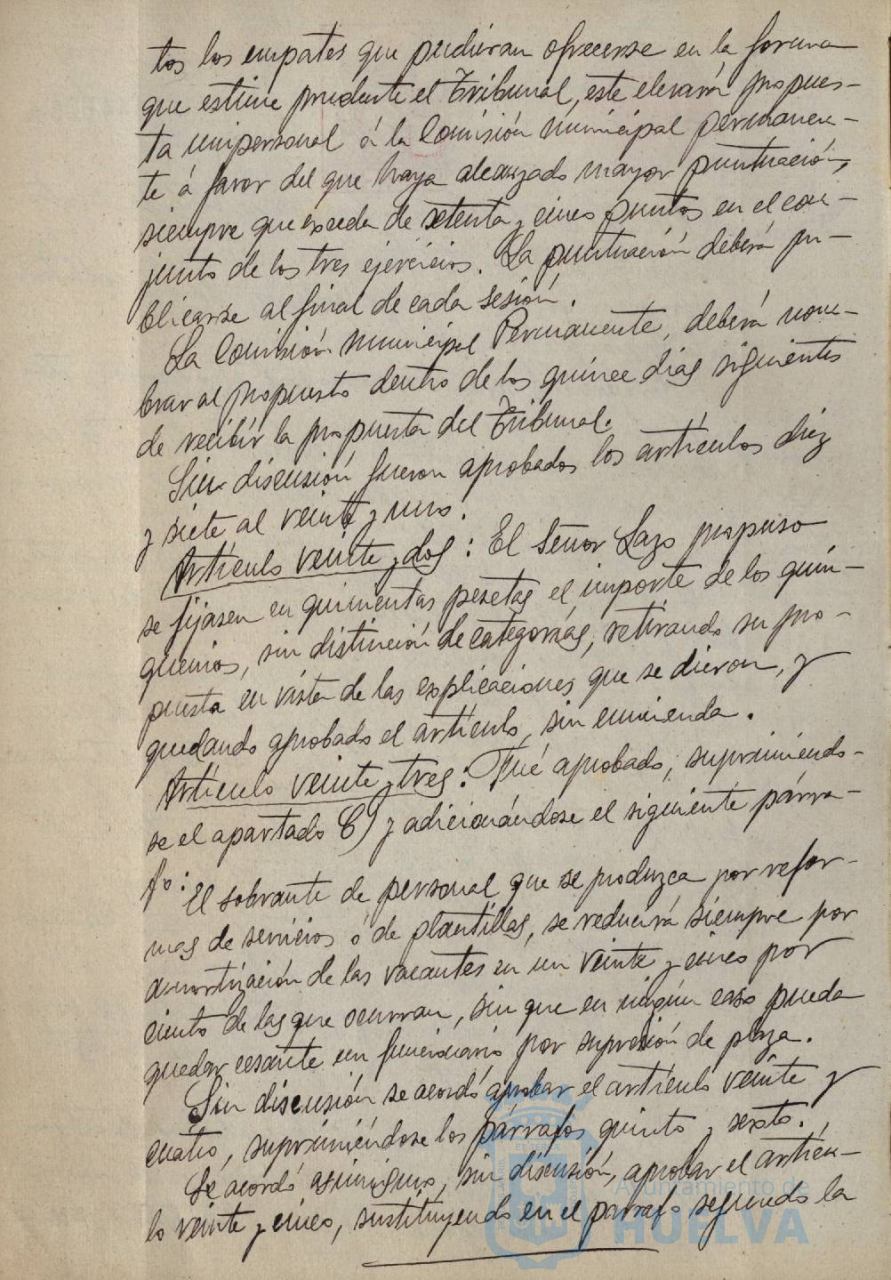 tos los empates que pudieran ofrecerse en la forma
que estime prudente el Tribunal, este elevará propues-
ta unipersonal á la Comisión municipal permanen-
te á favor del que haya alcanzado mayor puntuación,
siempre que exceda de setenta y cinco puntos en el con-
junto de los tres ejercicios. La puntuación deberá pu-
blicarse al final de cada sesión.
La Comisión Municipal Permanente, deberá nom-
brar al propuesto dentro de los quince días siguientes
de recibir la propuesta del Tribunal.
Sin discusión fueron aprobados los artículos diez
y siete al veinte y uno.
Artículo veinte y dos: El Señor Lazo propuso
se fijasen en quinientas pesetas el importe de los quin-
quenios, sin distinción de categorías, retirando su pro-
puesta en vista de las explicaciones que se dieron, y
quedando aprobado el artículo, sin enmienda.
Artículo veinte y tres: Fué aprobado, suprimiendo-
se el apartado C) y adicionándose el siguiente párra-
fo: El sobrante de personal que se produzca por refor-
mas de servicios ó de plantillas, se reducirá siempre por
amortización de las vacantes en un veinte y cinco por
ciento de las que ocurran, sin que en ningún caso pueda
quedar cesante un funcionario por supresión de plaza.
Sin discusión se acordó aprobar el artículo veinte y
cuatro, suprimiéndose los párrafos quinto y sexto.
Se acordó asimismo, sin discusión, aprobar el artícu-
lo veinte y cinco, sustituyendo en el párrafo segundo la
Ayuntamiento de
HUELVA